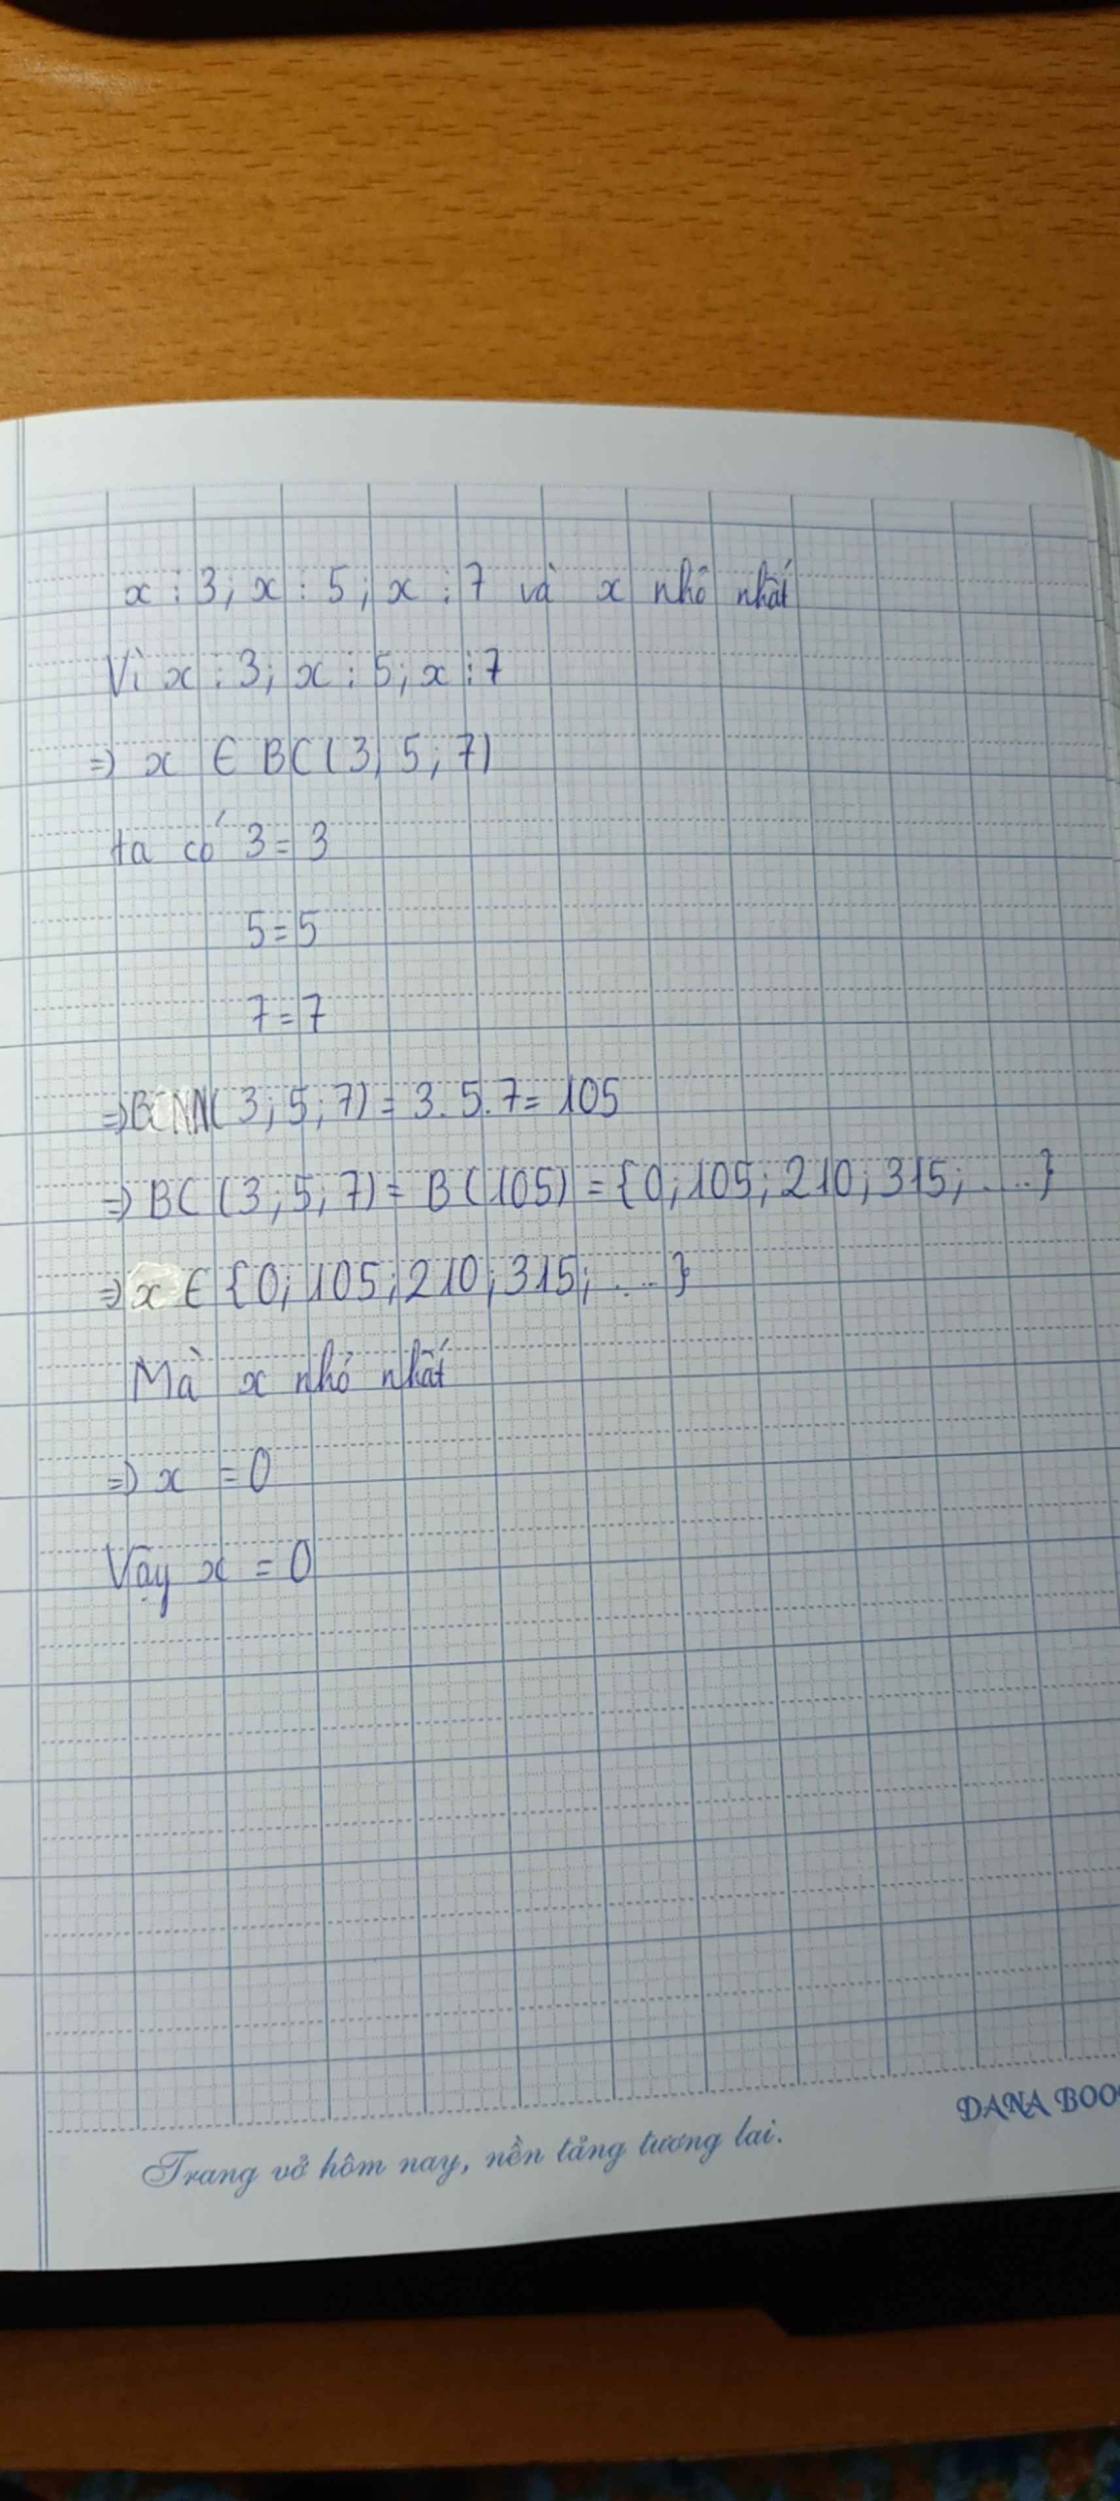 x ⋮ 3; x ⋮ 5; x ⋮ 7 và x nhỏ nhất
Vì x ⋮ 3; x ⋮ 5; x ⋮ 7
=> x ∈ BC(3; 5; 7)
ta có 3 = 3
5 = 5
7 = 7
=> BCNN(3; 5; 7) = 3.5.7 = 105
=> BC(3; 5; 7) = B(105) = {0; 105; 210; 315; ....}
=> x ∈ {0; 105; 210; 315; ....}
Mà x nhỏ nhất
=> x = 0
Vậy x = 0
DANA BOO
Trang vở hôm nay, nền tảng tương lai.